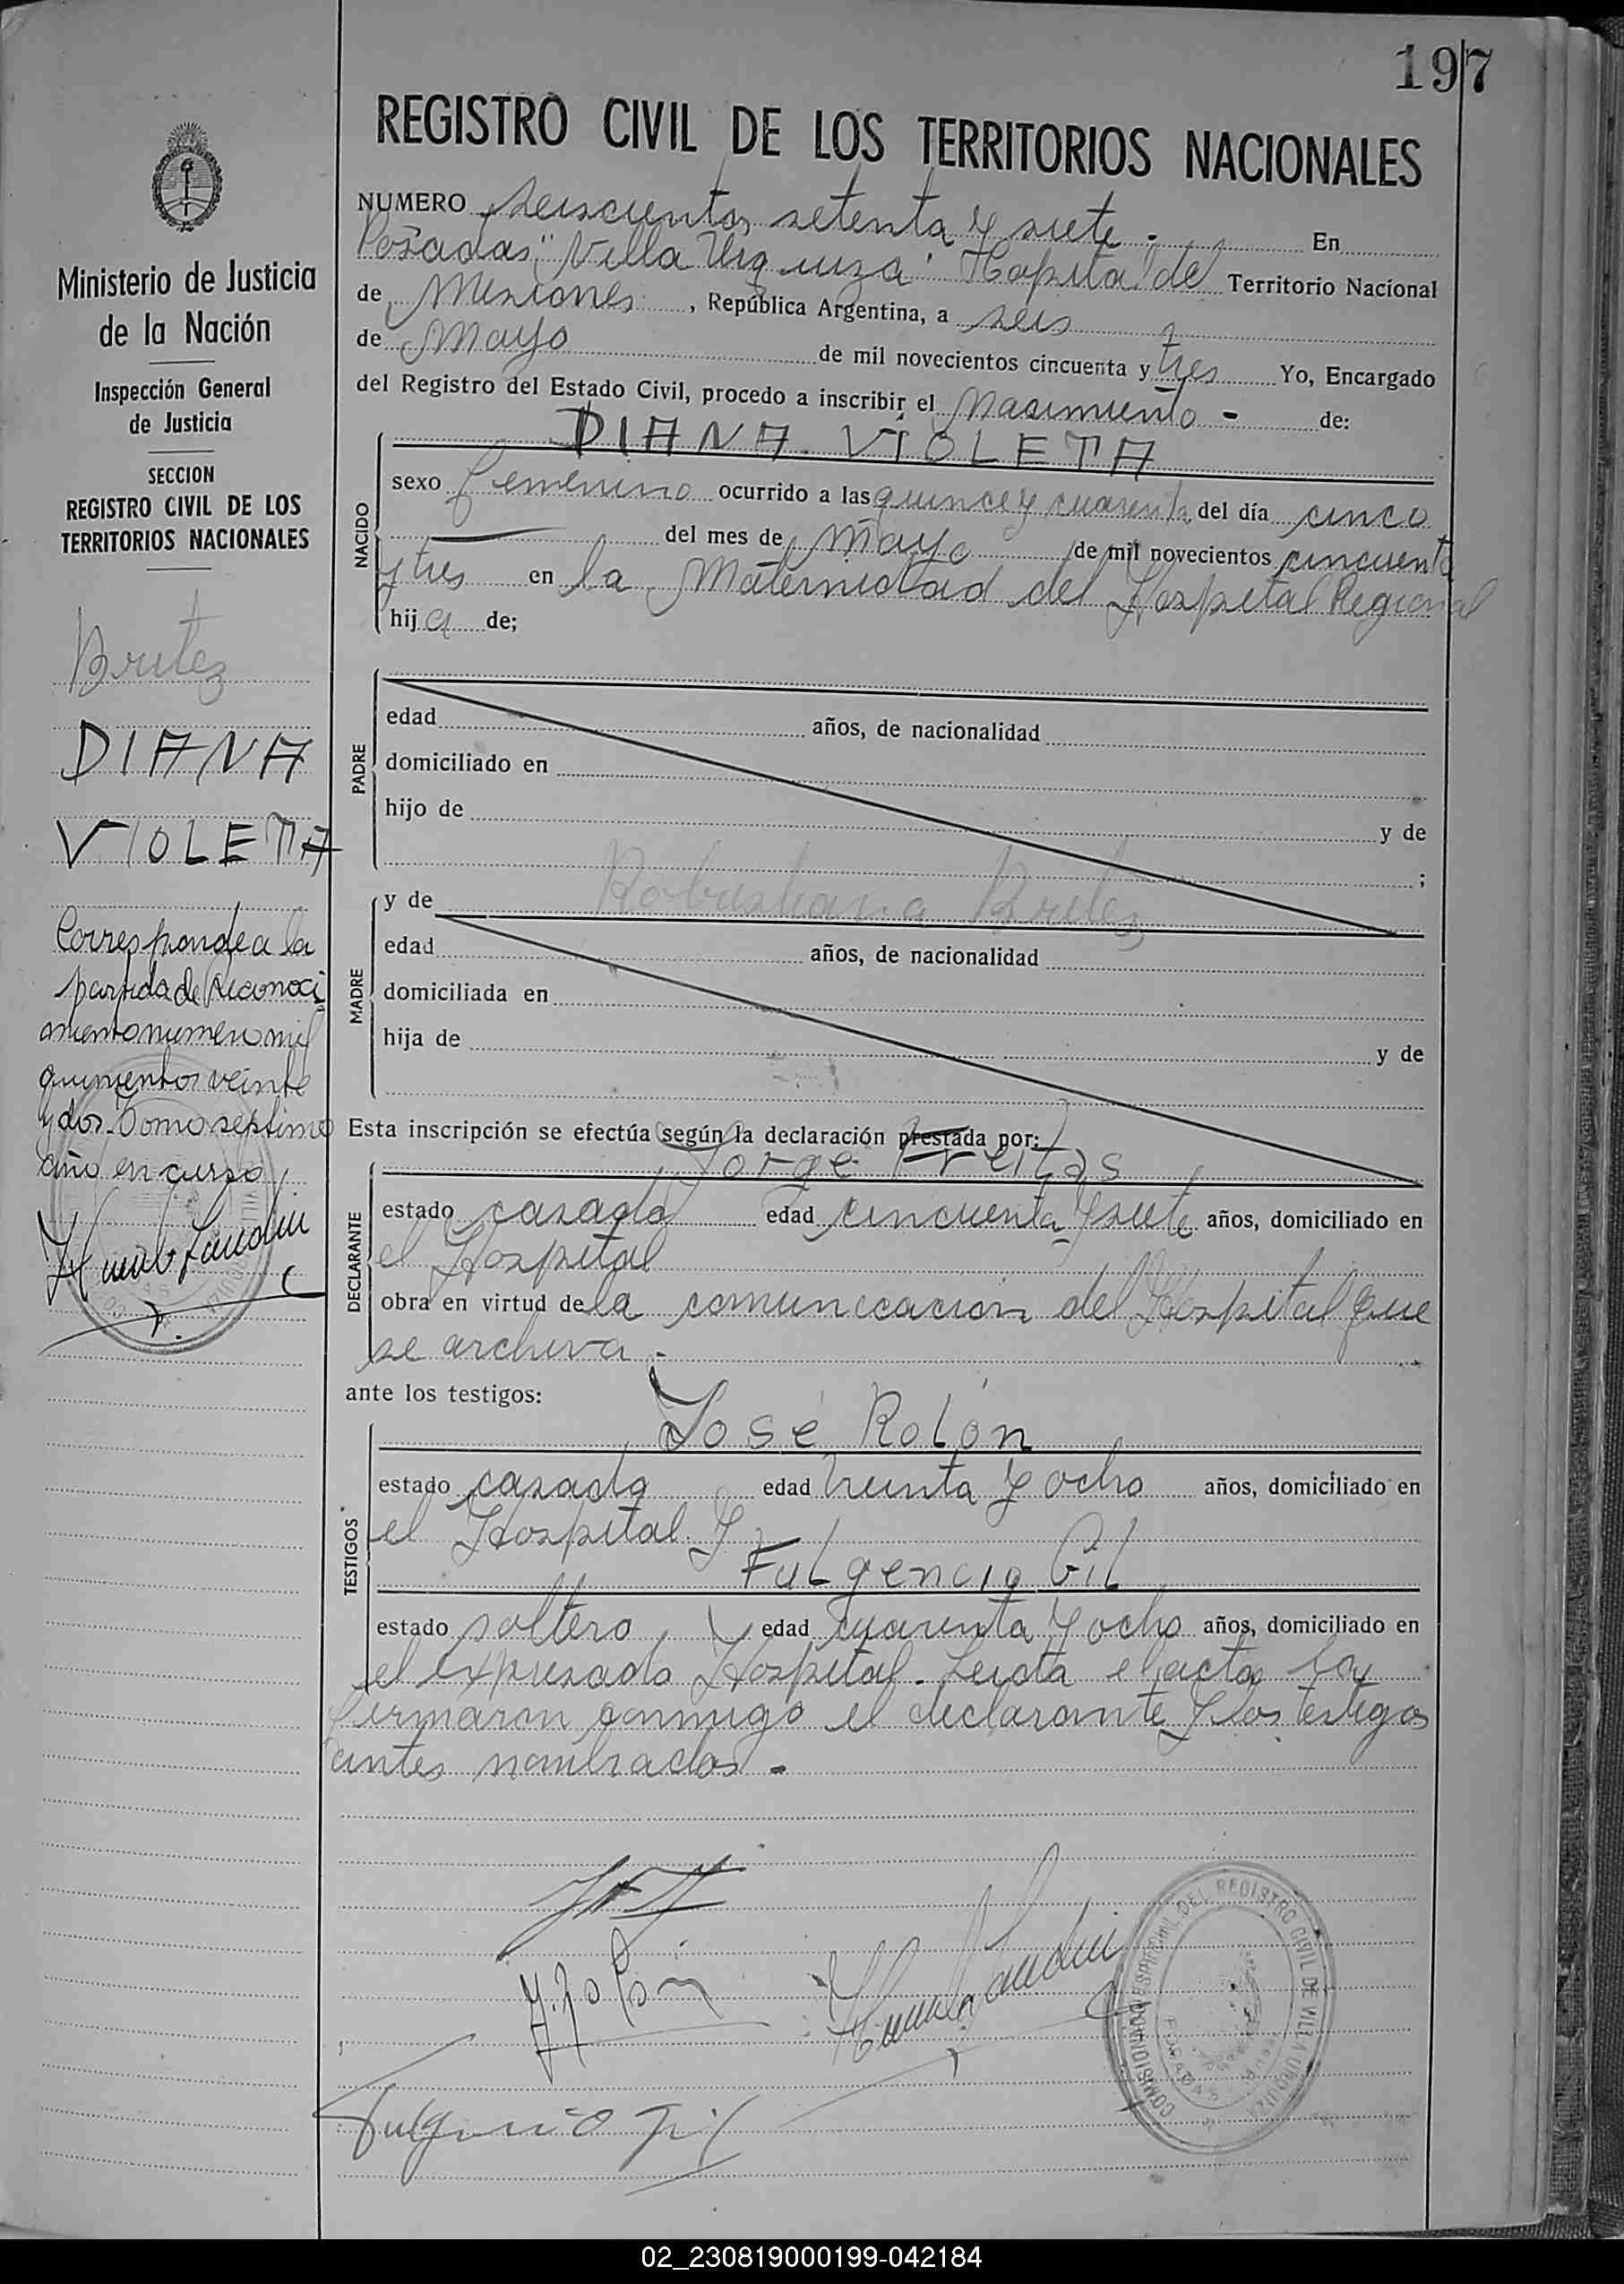 197
REGISTRO CIVIL DE LOS TERRITORIOS NACIONALES
NUMERO seiscientos setenta y siete.- En
Posadas "Villa Urquiza" Hapital del Territorio Nacional
de Misiones, República Argentina, a seis
de Mayo de mil novecientos cincuenta y tres Yo, Encargado
del Registro del Estado Civil, procedo a inscribir el Nasimiento - de:
DIANA VIOLETA
NACIDO
sexo femenino ocurrido a las quince y cuarenta del día cinco
del mes de mayo de mil novecientos cincuenta
y tres en la Maternidad del Hospital Regional
hija de;
PADRE
edad años, de nacionalidad
domiciliado en
hijo de y de
;
MADRE
y de Robustiana Britez
edad años, de nacionalidad
domiciliada en
hija de y de
Esta inscripción se efectúa según la declaración prestada por:
DECLARANTE
Jorge Freitas
estado casado edad cincuenta y siete años, domiciliado en
el Hospital
obra en virtud de la comunicación del Hospital que
se archiva.-
ante los testigos:
TESTIGOS
José Rolón
estado casado edad treinta y ocho años, domiciliado en
el Hospital y
Fulgencio Gil
estado soltero y edad cuarenta y ocho años, domiciliado en
el expresado Hospital. Leida el acta la
firmaron conmigo el declarante y los testigos
antes nombrados.-
J. Rolón
Fulgencio Gil
COMISIONADO ESPECIAL DEL REGISTRO CIVIL DE VILLA URQUIZA
POSADAS
Ministerio de Justicia
de la Nación
Inspección General
de Justicia
SECCION
REGISTRO CIVIL DE LOS
TERRITORIOS NACIONALES
Britez
DIANA
VIOLETA
Corresponde a la
partida de Reconoci
miento numero mil
quinientos veinte
y dos Tomo septimo
año en curso
02_230819000199-042184